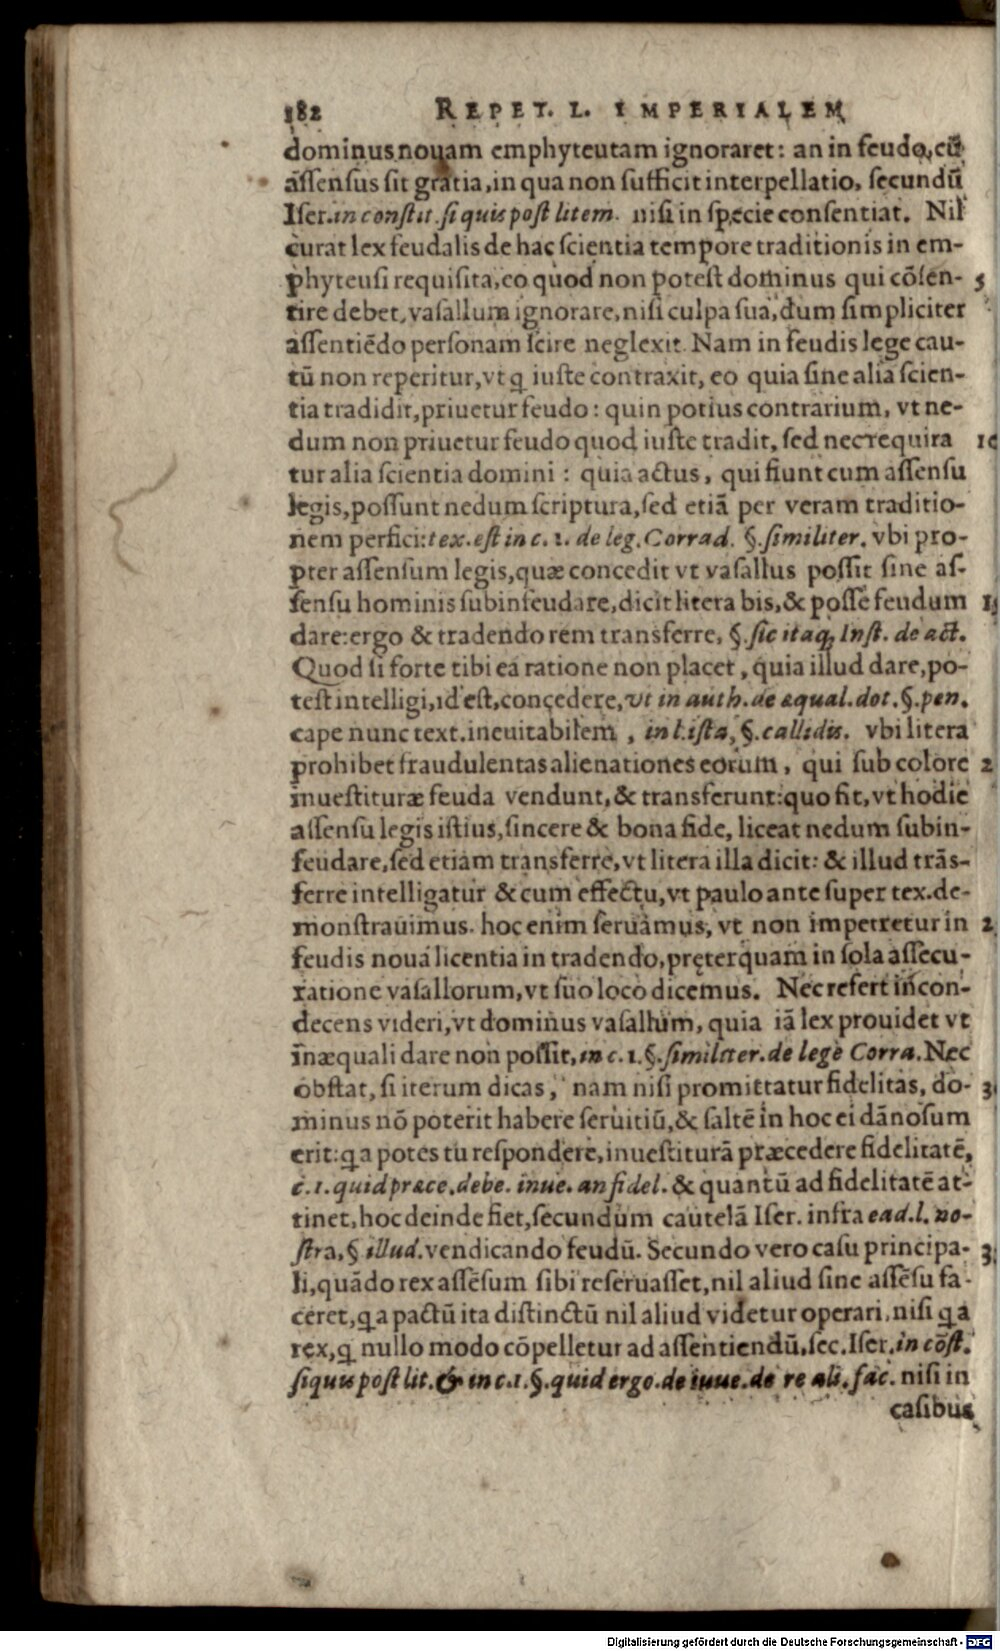 182 REPET. L. IMPERIALEM
dominus nouam emphyteutam ignoraret: an in feudo, cū
assensus sit gratia, in qua non sufficit interpellatio, secundū
Iser. in constit. si quis post litem. nisi in specie consentiat. Nil
curat lex feudalis de hac scientia tempore traditionis in em-
phyteusi requisita, eo quod non potest dominus qui cōsen- 5
tire debet, vasallum ignorare, nisi culpa sua, dum simpliciter
assentiēdo personam scire neglexit. Nam in feudis lege cau-
tū non reperitur, vt q iuste contraxit, eo quia sine alia scien-
tia tradidit, priuetur feudo: quin potius contrarium, vt ne-
dum non priuetur feudo quod iuste tradit, sed nec requira 10
tur alia scientia domini: quia actus, qui fiunt cum assensu
legis, possunt nedum scriptura, sed etiā per veram traditio-
nem perfici: tex. est in c. 1. de leg. Corrad. §. similiter. vbi pro-
pter assensum legis, quæ concedit vt vasallus possit sine as-
sensu hominis subinfeudare, dicit litera bis, & posse feudum 1
dare: ergo & tradendo rem transferre, §. sic itaq; Inst. de act.
Quod si forte tibi ea ratione non placet, quia illud dare, po-
test intelligi, id est, concedere, vt in auth. de æqual. dot. §. pen.
cape nunc text. ineuitabilem, in l. ista, §. callidis. vbi litera
prohibet fraudulentas alienationes eorum, qui sub colore 2
inuestituræ feuda vendunt, & transferunt: quo fit, vt hodie
assensu legis istius, sincere & bona fide, liceat nedum subin-
feudare, sed etiam transferre, vt litera illa dicit: & illud trās-
ferre intelligatur & cum effectu, vt paulo ante super tex. de-
monstrauimus. hoc enim seruamus, vt non impetretur in 2
feudis noua licentia in tradendo, pręterquam in sola assecu-
ratione vasallorum, vt suo loco dicemus. Nec refert incon-
decens videri, vt dominus vasallum, quia iā lex prouidet vt
inæquali dare non possit, in c. 1. §. similiter. de lege Corra. Nec
obstat, si iterum dicas, nam nisi promittatur fidelitas, do- 3
minus nō poterit habere seruitiū, & saltē in hoc ei dānosum
erit: qa potes tu respondere, inuestiturā præcedere fidelitatē,
c. 1. quid præce. debe. inue. an fidel. & quantū ad fidelitatē at-
tinet, hoc deinde fiet, secundum cautelā Iser. infra ead. l. no-
stra, § illud. vendicando feudū. Secundo vero casu principa- 3
li, quādo rex assēsum sibi reseruasset, nil aliud sine assēsu fa-
ceret, qa pactū ita distinctū nil aliud videtur operari, nisi qa
rex, q nullo modo cōpelletur ad assentiendū, sec. Iser. in cōst.
si quis post lit. & in c. 1. §. quid ergo. de inue. de re ali. fac. nisi in
casibus
Digitalisierung gefördert durch die Deutsche Forschungsgemeinschaft - DFG